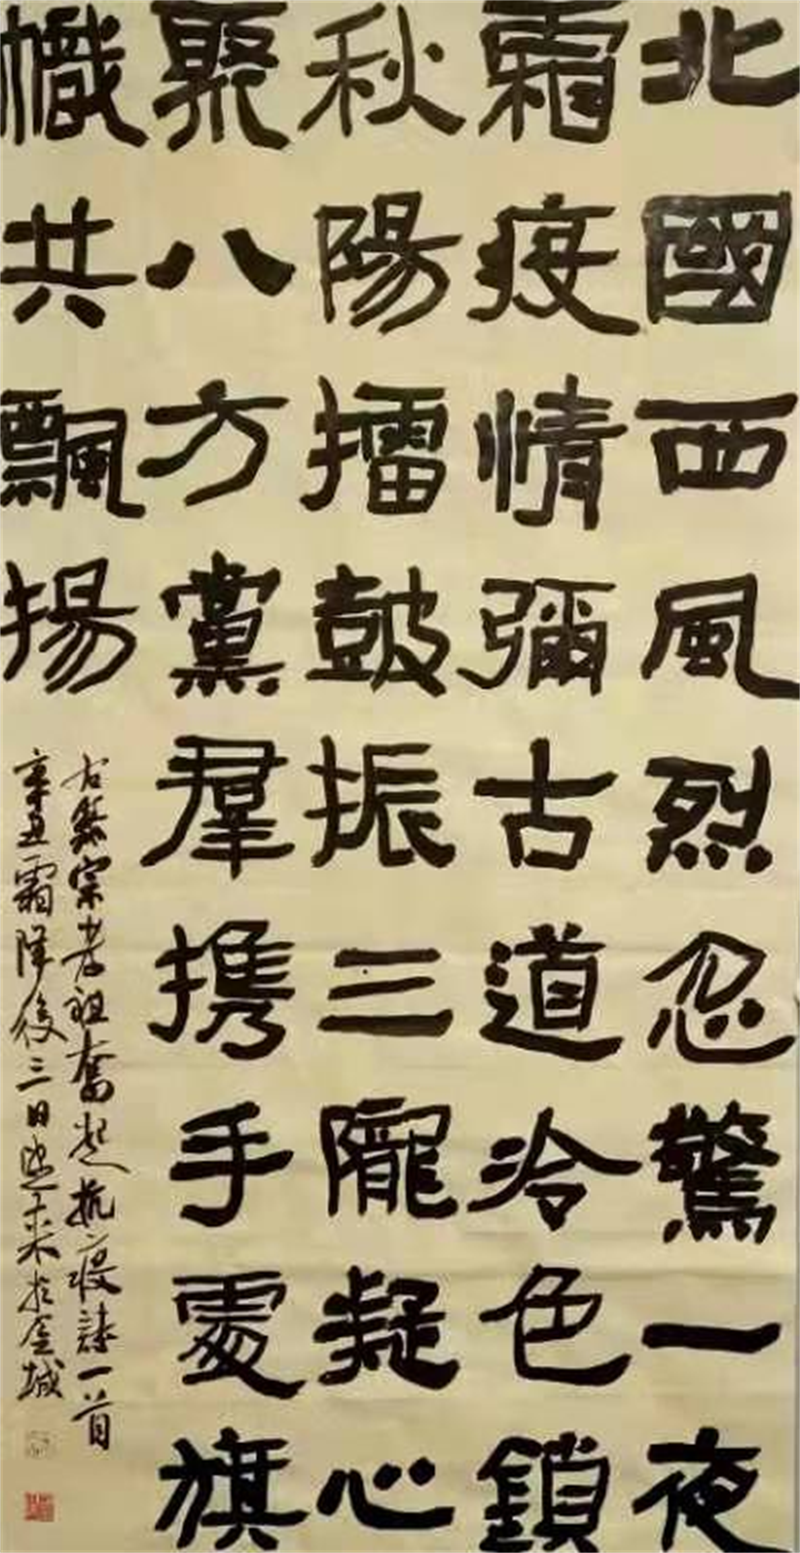 北國西風烈忽驚一夜
霜疫情彌古道冷色鎖
秋陽擂鼓振三隴凝心
聚八方黨羣携手處旗
幟共飄揚
右錄宗孝祖奮起抗疫詩一首
辛丑霜降後三日於金城